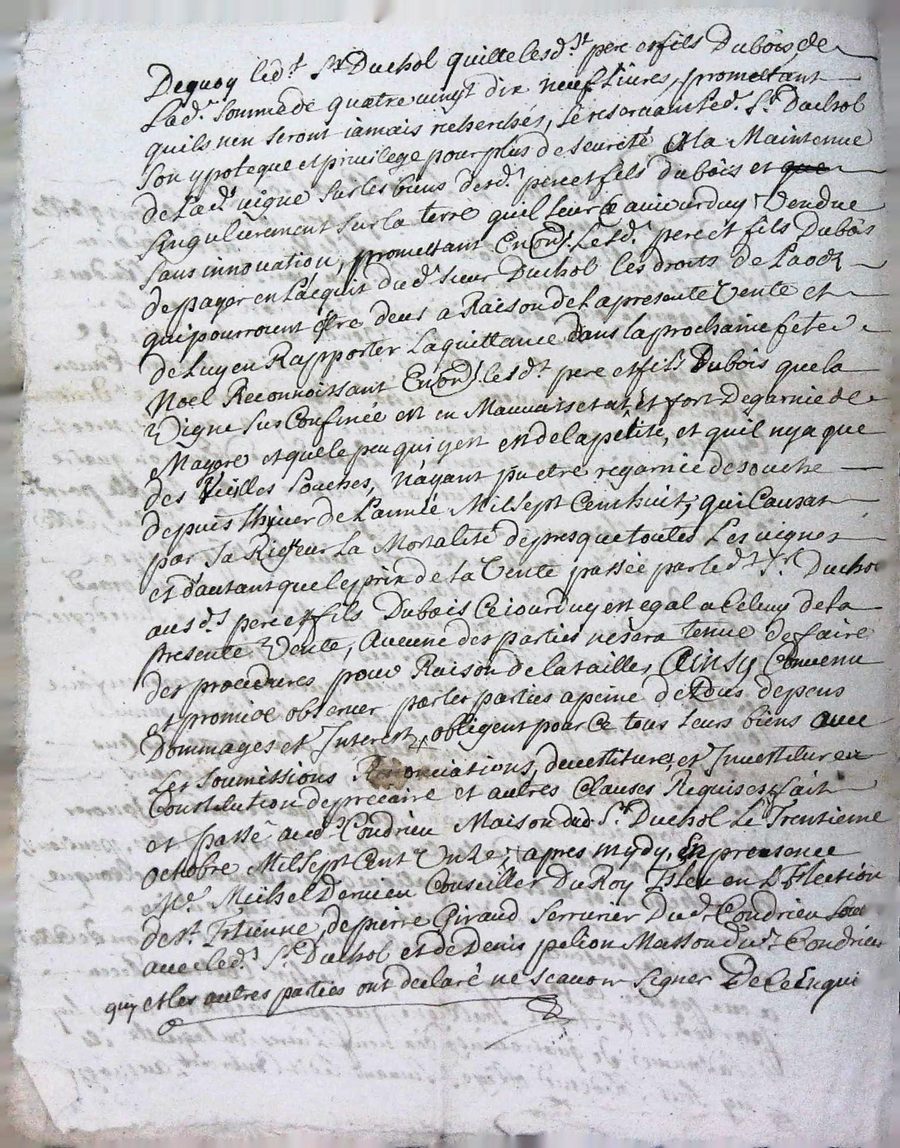 Dequoy led.t Sr Duchol quitte lesd.ts pere et fils Dubois de
Lad.e Somme de quatre vingt dix neuf livres, promettant
quils nen seront jamais recherchés, se reservant led. Sr. Duchol
Son ypoteque et privilege pour plus de seureté a la Maintenue
de Lad.e vigne Sur les biens desd.s pere et fils dubois et que
singulierement Sur la terre quil leur a aujourduy Vendue
Sans innovation, promettant Lesd.s pere et fils Dubois
de payer en L'acquit dud.t sieur Duchol les droits de
qui pourront estre deus a Raison de La presente Vente et
de Luy en Rapporter La quittance dans la prochaine fete de
Noel Reconnoissant lesd.ts pere et fils Dubois que la
Vigne Sus Confinée est en Mauvais etat, et fort Degarnie de
et que le peu qui y est est de la petite, et quil ny a que
des Vieilles Souches, n'ayant pu etre regarnie de souche
depuis Lhyver de L'année Mil Sept Cent huit, qui Causat
par sa Rigueur La Mortalité de presque toutes Les vignes
et d'autant que le prix de La Vente passée par led.t Sr. Duchol
ausd.s pere et fils Dubois Cejourduy est egal a Celuy de la
presente Vente, Aucune des parties ne sera tenue de faire
des procedures pour Raison de la taille, Ainsy Convenu
et promis observer par les parties a peine de Tous depens
Dommages et Interest, obligent pour Ce tous leurs biens avec
Les Soumissions Renonciations, devestiture, et Investiture
Constitution de precaire et autres Clauses Requises, fait
et passé aud.t Condrieu Maison dud. Sr. Duchol Le Trentieme
octobre Mil Sept Cent Unze, apres mydy, En presence
Me. Michel Dervieu Conseiller Du Roy Eleu en L'Election
de St. Etienne, de pierre Giraud Serrurier Dud.t Condrieu
avec led.t Sr. Duchol et de Denis pelion Masson dud.t Condrieu
qui, et les autres parties ont declaré ne Scavoir Signer De Ce Enqui